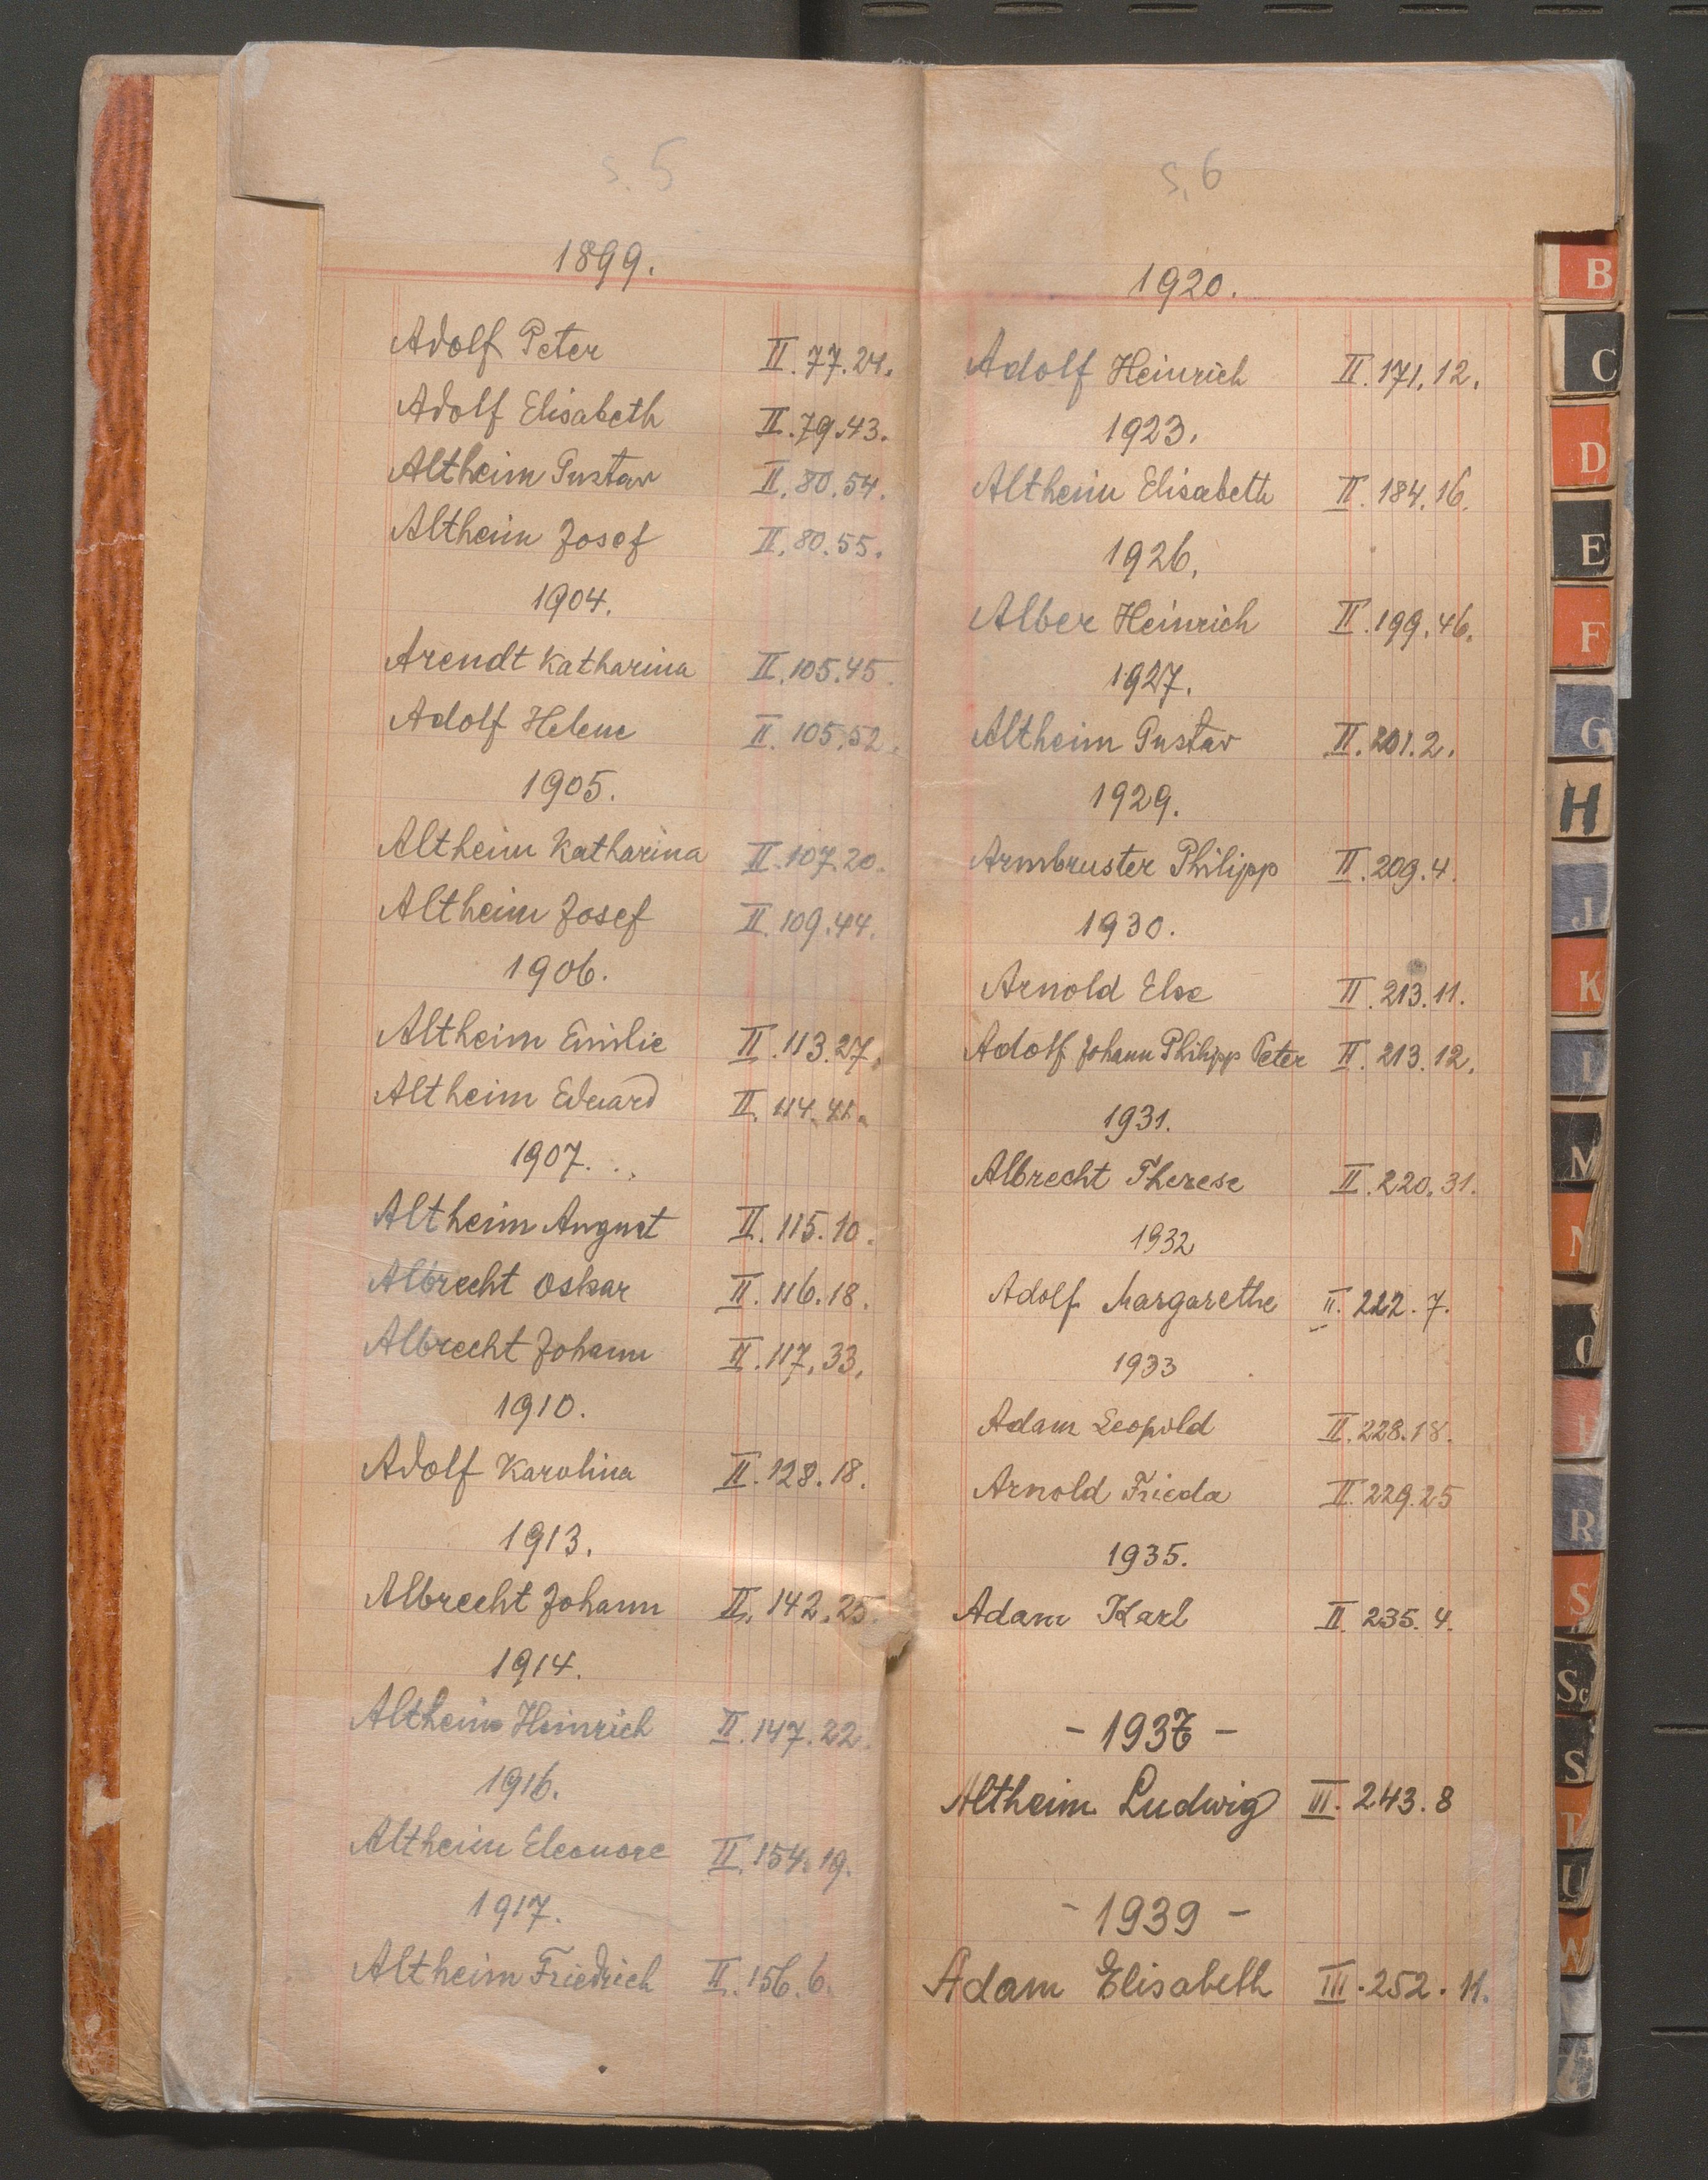 S. 5
1899.
Adolf Peter II. 77. 24.
Adolf Elisabeth II. 79. 43.
Altheim Gustav II. 80. 54.
Altheim Josef II. 80. 55.
1904.
Arendt Katharina II. 105. 45.
Adolf Helene II. 105. 52.
1905.
Altheim Katharina II. 107. 20.
Altheim Josef II. 109. 44.
1906.
Altheim Emilie II. 113. 27.
Altheim Eduard II. 114. 41.
1907.
Altheim August II. 115. 10.
Albrecht Oskar II. 116. 18.
Albrecht Johann II. 117. 33.
1910.
Adolf Karolina II. 128. 18.
1913.
Albrecht Johann II. 142. 25.
1914.
Altheim Heinrich II. 147. 22.
1916.
Altheim Eleonore II. 154. 19.
1917.
Altheim Friedrich II. 156. 6.
S. 6
1920.
Adolf Heinrich II. 171. 12.
1923.
Altheim Elisabeth II. 184. 16.
1926.
Alber Heinrich II. 199. 46.
1927.
Altheim Gustav II. 201. 2.
1929.
Armbruster Philipp II. 209. 4.
1930.
Arnold Else II. 213. 11.
Adolf Johann Philipp Peter II. 213. 12.
1931.
Albrecht Therese II. 220. 31.
1932
Adolf Margarethe II. 222. 7.
1933
Adam Leopold II. 228. 18.
Arnold Frieda II. 229. 25
1935.
Adam Karl II. 235. 4.
- 1937 -
Altheim Ludwig III. 243. 8
- 1939 -
Adam Elisabeth III. 252. 11.
B
C
D
E
F
G
H
J
K
L
M
N
O
P
R
S
Sc
S
T
U
W